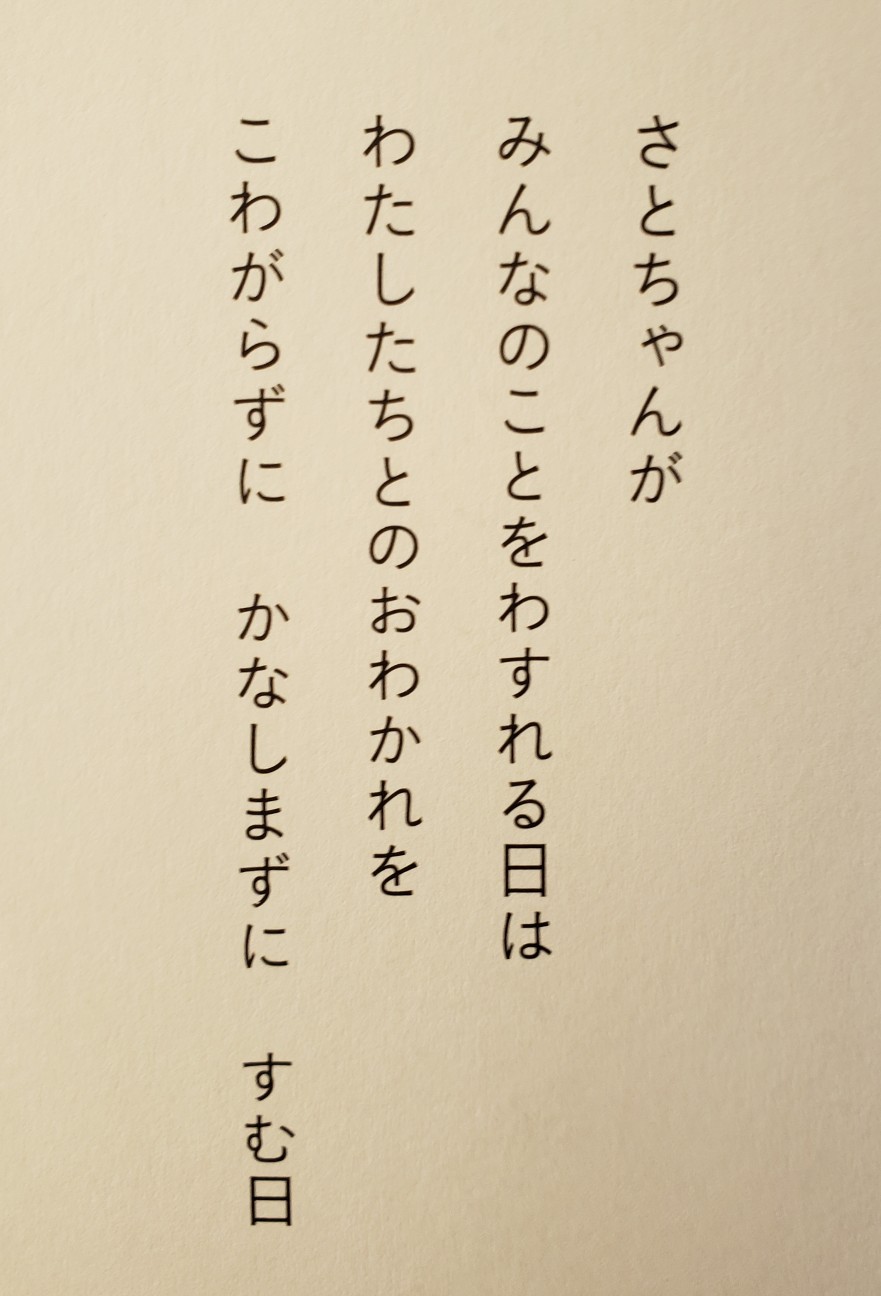 さとちゃんが
みんなのことをわすれる日は
わたしたちとのおわかれを
こわがらずに　かなしまずに　すむ日